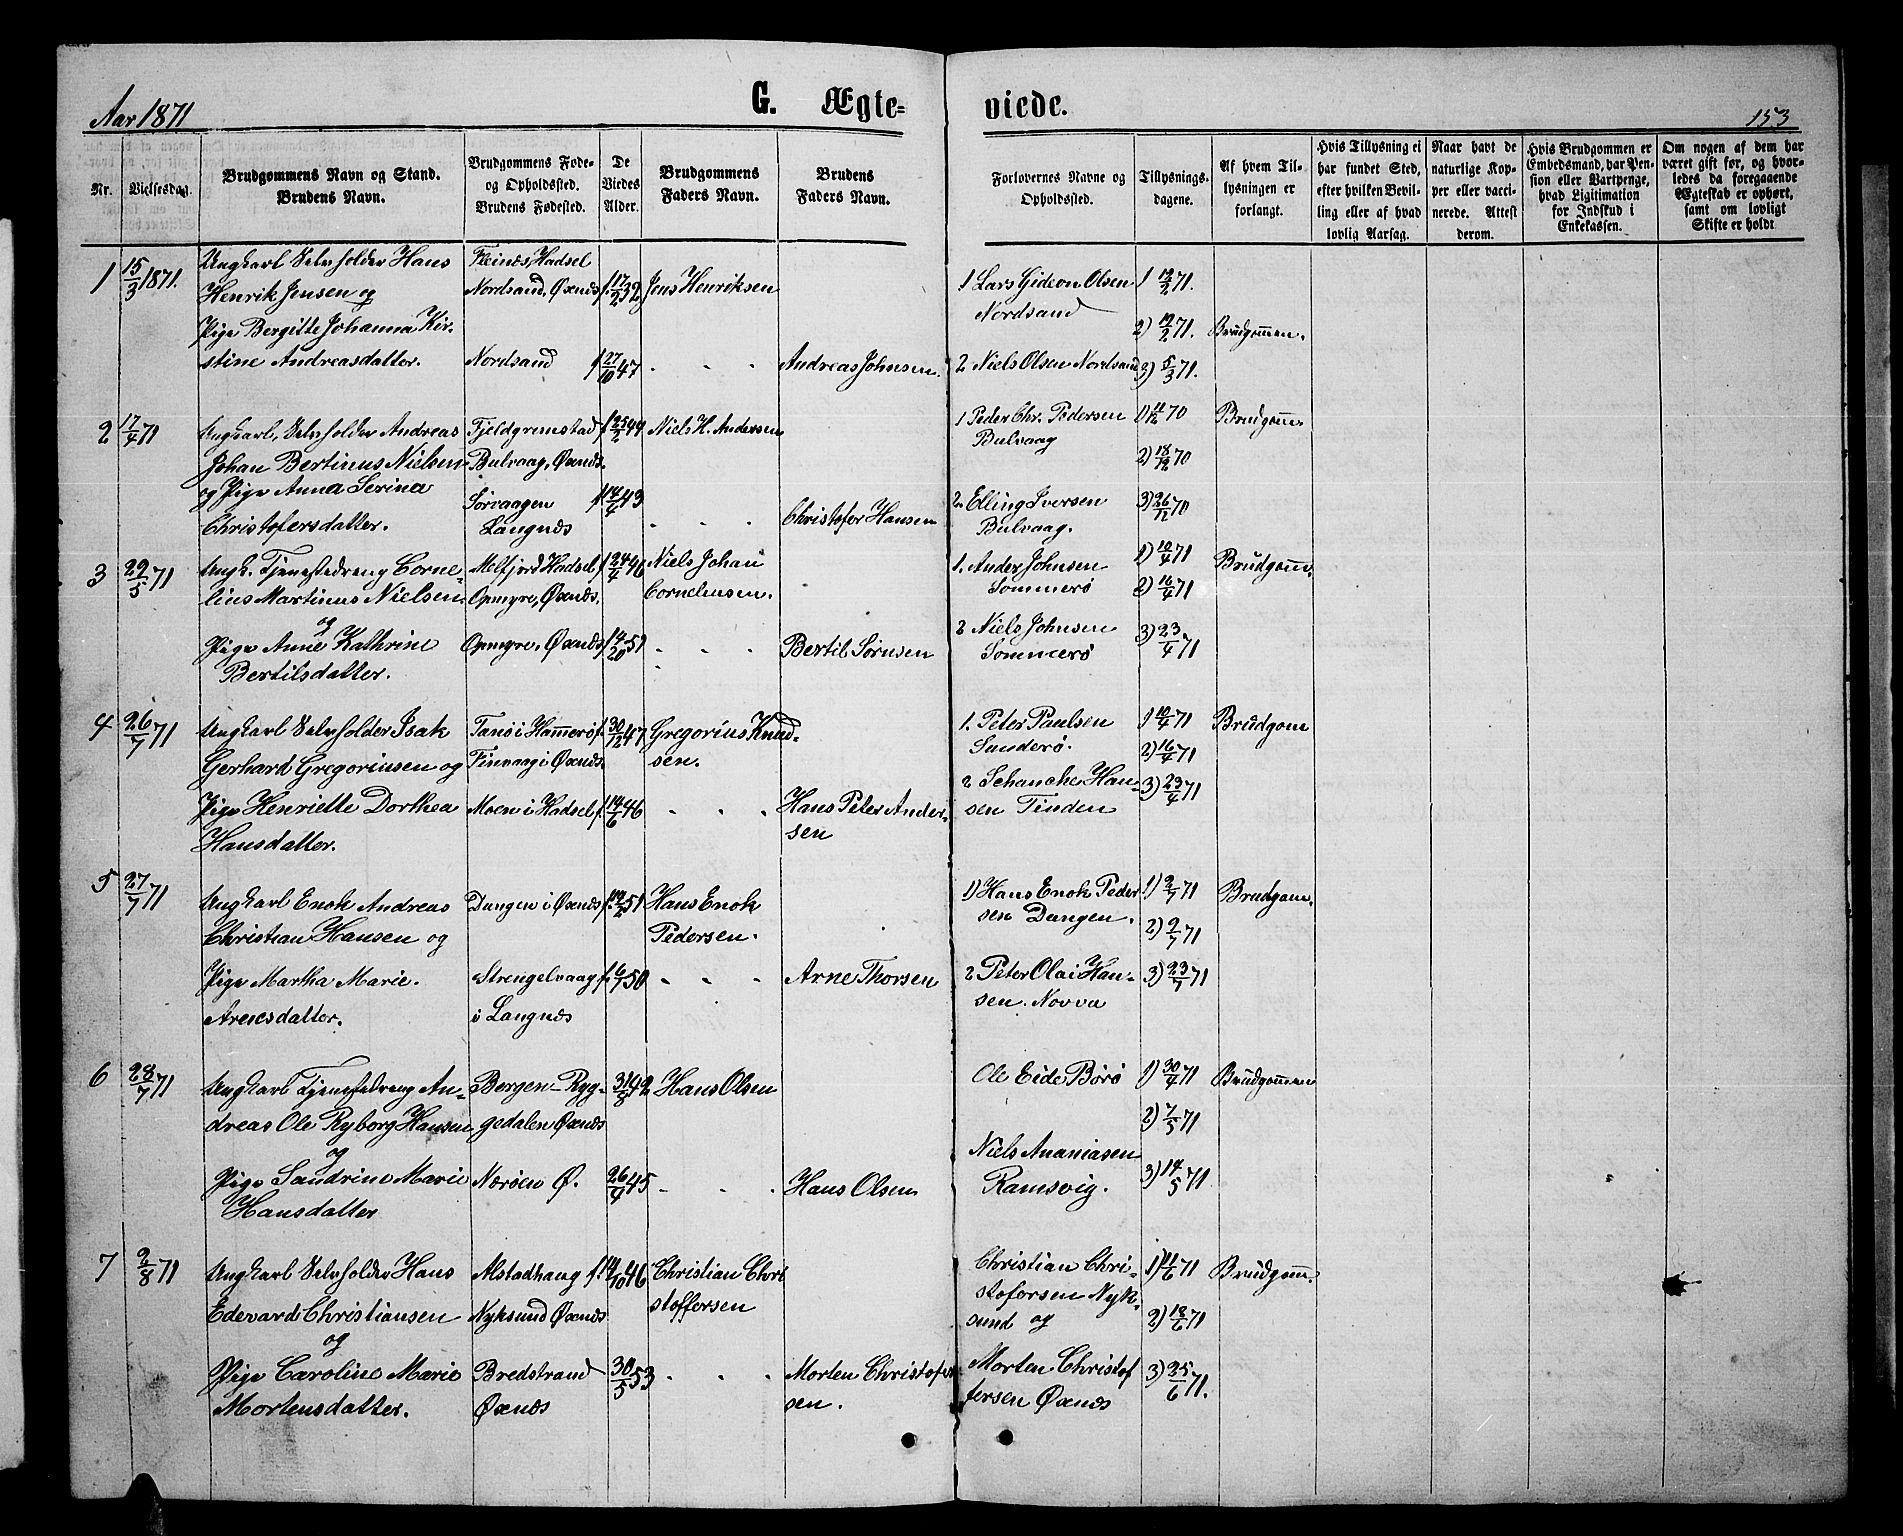 Aar 1871
G. Ægteviede.
153
Nr.
Vielsesdag.
Brudgommens Navn og Stand.
Brudens Navn.
Brudgommens Føde-
og Opholdssted.
Brudens Fødested.
De
Viedes
Alder.
Brudgommens
Faders Navn.
Brudens
Faders Navn.
Forlovernes Navne og
Opholdssted.
Tillysnings-
dagene.
Af hvem Til-
lysningen er
forlangt.
Hvis Tillysning ei
har fundet Sted,
efter hvilken Bevil-
ling eller af hvad
lovlig Aarsag.
Naar havt de
naturlige Kop-
per eller vacci-
nerede. Attest
derom.
Hvis Brudgommen er
Embedsmand, har Pen-
sion eller Vartpenge,
hvad Ligitimation
for Indskud i
Enkekassen.
Om nogen af dem har
været gift før, og hvor-
ledes da foregaaende
Ægteskab er ophørt,
samt om lovligt
Skifte er holdt
1 15/3 1871.
Ungkarl Selvholder Hans
Henrik Jensen og
Pige Bergitte Johanna Kir-
stine Andreasdatter.
Fleinæs, Hadsel
Nordsand, Øxnæs
Nordsand
f. 17/2 32
f 27/10 47
Jens Henriksen
Andreas Johnsen.
1 Lars Gideon Olsen
Nordsand
2 Niels Olsen Nordsand
1 12/2 71.
2) 19/2 71.
3) 5/3 71.
Brudgommen.
2 17/4 71
Ungkarl, Selvholder Andreas
Johan Bertinus Nielsen
og Pige Anna Serina
Christofersdatter.
Fjeldgrimstad
Bulvaag, Øxnæs.
Sørvaagen
Langnæs
f. 25/2 44
f 14/7 43
Niels H. Andersen
Christofer Hansen
1 Peder Chr. Pedersen
Bulvaag
2. Elling Iversen
Bulvaag.
1) 11/12 70
2) 18/12 70
3) 26/12 70
Brudgomm
3 29/5 71
Ungk. Tjenestedreng Corne-
lius Martinus Nielsen
og
Pige Anne Kathrine
Bertilsdatter.
Melfjord Hadsel
Opmyre, Øxnæs.
Opmyre, Øxnæs
f. 24/4 46
51
Niels Johan
Corneliussen.
Bertil Sørnsen
1. Ander Johnsen
Sommerø
2 Niels Johnsen
Sommerø
1) 10/4 71
2) 16/4 71
3) 23/4 71
Brudgomm.
4 26/7 71
Ungkarl Selvholder Isak
Gerhard Gregoriusen og
Pige Henriette Dorthea
Hansdatter.
Tanø i Hammerø
Finvaag i Øxnæs
Moen i Hadsel
f. 30/12 47
f. 14/6 46
Gregorius Knud-
sen.
Hans Peter Ander-
sen
1. Peter Paulsen
Sanderø.
2 Schanche Han-
sen Tinden
1) 10/4 71
2) 16/4 71
3) 23/4 71
Brudgom
5 27/7 71
Ungkarl Enok Andreas
Christian Hansen og
Pige Martha Marie
Arnesdatter.
Dangen i Øxnæs
Strengelvaag
i Langnæs
51
f. 6/7 50
Hans Enok
Pedersen.
Arne Thorsen
1) Hans Enok Peder
sen Dangen.
2 Peter Olai Han-
sen. Novva
1) 2/7 71
2) 9/7 71
3) 23/7 71
Brudgom.
6 28/7 71
Ungkarl Tjenestedreng An-
dreas Ole Ryborg Hansen
og
Pige Sandrine Marie
Hansdatter
Bergen - Ryg-
gedalen Øxnæs
Nærøen Ø.
31/8 42
26/4 45
Hans Olsen
Hans Olsen
Ole Eide Børø
Niels Ananiasen
Ramsvig.
1) 30/4 71
2) 7/5 71
3) 14/5 71
Brudgommen
7 2/8 71
Ungkarl Selvholder Hans
Edevard Christiansen
og
Pige Caroline Marie
Mortensdatter.
Alstadhaug
Nyksund Øxnæs
Bredstrand
Øxnæs
f. 14/10 46
30/5 53
Christian Chri
stoffersen
Morten Christofer
sen.
Christian Chri-
stofersen Nyk-
sund og
Morten Christof
fersen Øxnæs
1) 11/6 71
2) 18/6 71
3) 25/6 71.
Brudgomm.